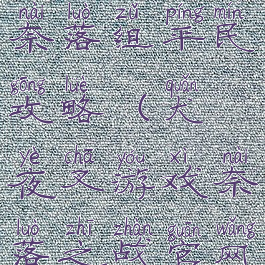 nài luò zǔ píng mín
奈落组平民
gōng lüè quǎn
攻略(犬
yè chā yóu xì nài
夜叉游戏奈
luò zhī zhàn guān wǎng
落之战官网